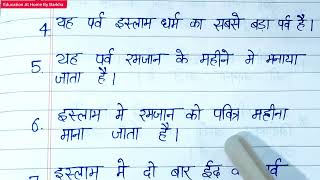 Education At Home By Barkha
4. यह पर्व इस्लाम धर्म का सबसे बडा पर्व है।
5. यह पर्व रमजान के महीने मे मनाया
जाता है।
6. इस्लाम मे रमजान को पवित्र महीना
माना जाता है।
इस्लाम मे दो बार ईद पर्व